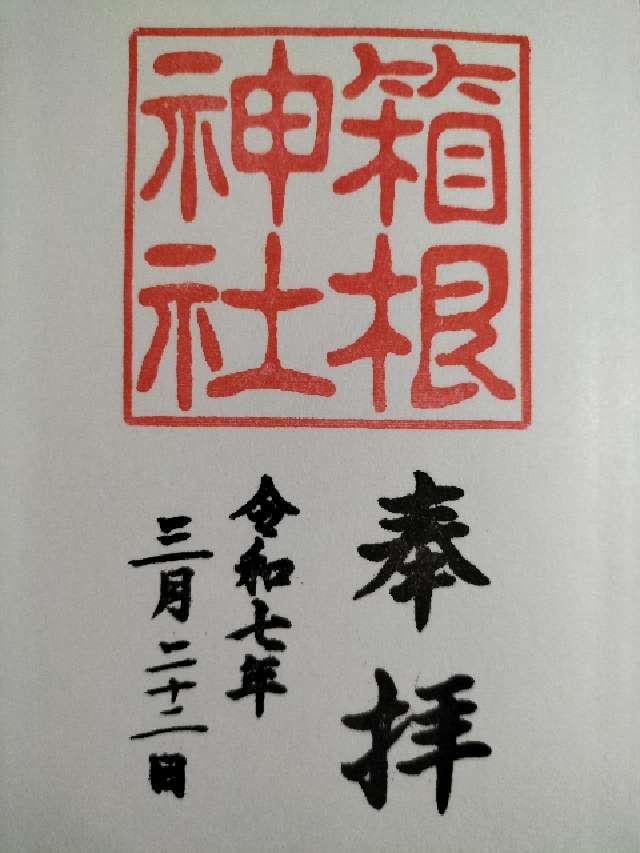 箱根
神社
奉拝
令和七年
三月二十二日